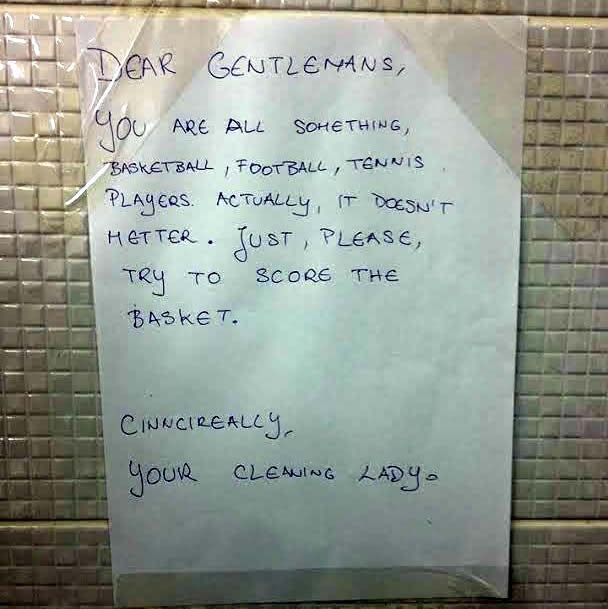 DEAR GENTLEMANS,
YOU ARE ALL SOMETHING,
BASKETBALL, FOOTBALL, TENNIS
PLAYERS. ACTUALLY, IT DOESN'T
METTER. JUST, PLEASE,
TRY TO SCORE THE
BASKET.
CINNCIREALLY,
YOUR CLEANING LADY.